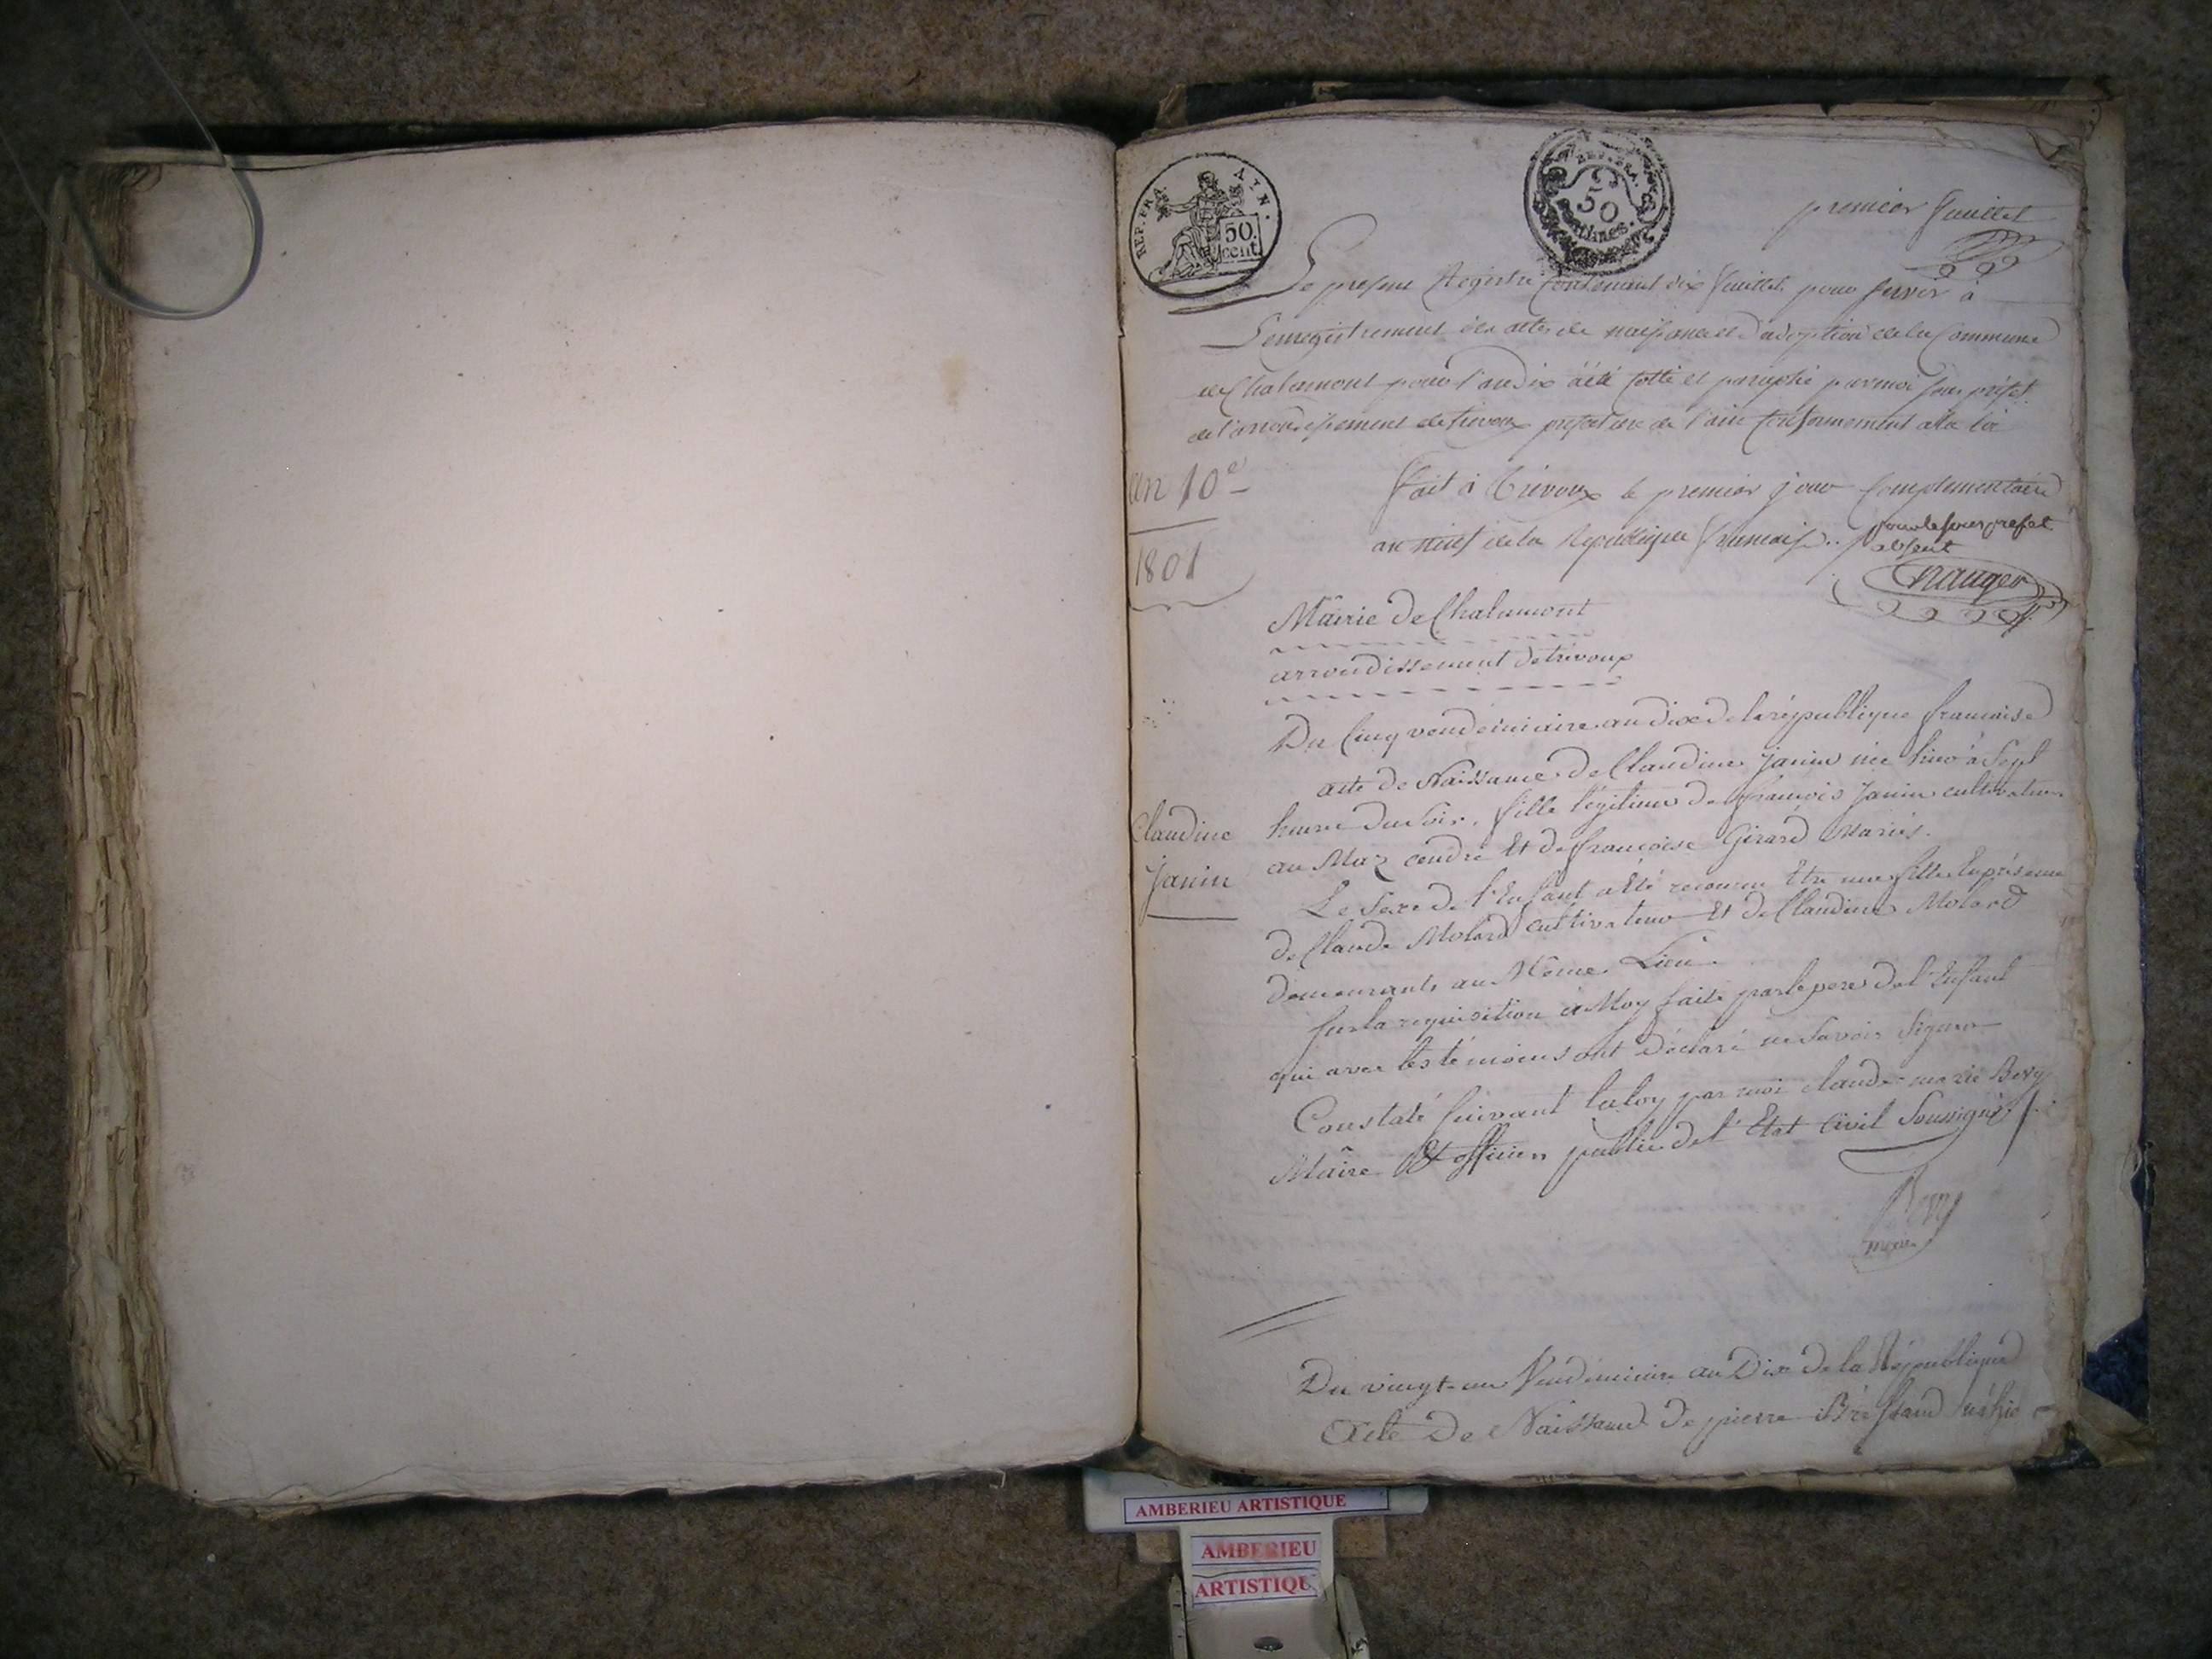 REP. FRA. AIN.
50.
cent.
REP. FRA.
50
centimes.
premier feuillet
Le present Registre Contenant dix feuillets pour servir à
L'enregistrement des actes de naissance et d'adoption de la Commune
de Chalamont pour l'an dix à été Cotté et paraphé par moi sous préfet
de l'arrondissement de trevoux prefecture de l'ain Conformement a la loi
fait à Trévoux le premier jour Complementaire
an neuf de la Republique francaise.. pour le sous prefet
absent
an 10e
1801
Mâirie De Chalamont
arrondissement De trevoux
Du Cinq vendémiaire an dix De la république francaise
acte De Naissance De Claudine Janin née hier à Sept
heure Du Soir. fille légitime De françois Janin cultivateur
au Maz condre Et De françoise Girard Mariés.
Claudine
Janin
Le Sexe De l'Enfant a Eté reconnu Etre une fille En présence
De Claude Molard cultivateur Et De Claudine Molard
Demeurants au Même Lieu.
Sur la requisition à Moy faite par le pere De l'Enfant
qui avec les témoins ont Déclaré ne Savoir Signer
Constaté Suivant la loy par moi claude marie Bery
Mâire Et officier public De l'Etat Civil Soussigné
Bery
maire
Du vingt un Vendémiaire an Dix De la République
Acte De Naissance De pierre né hier
AMBERIEU ARTISTIQUE
AMBERIEU
ARTISTIQU